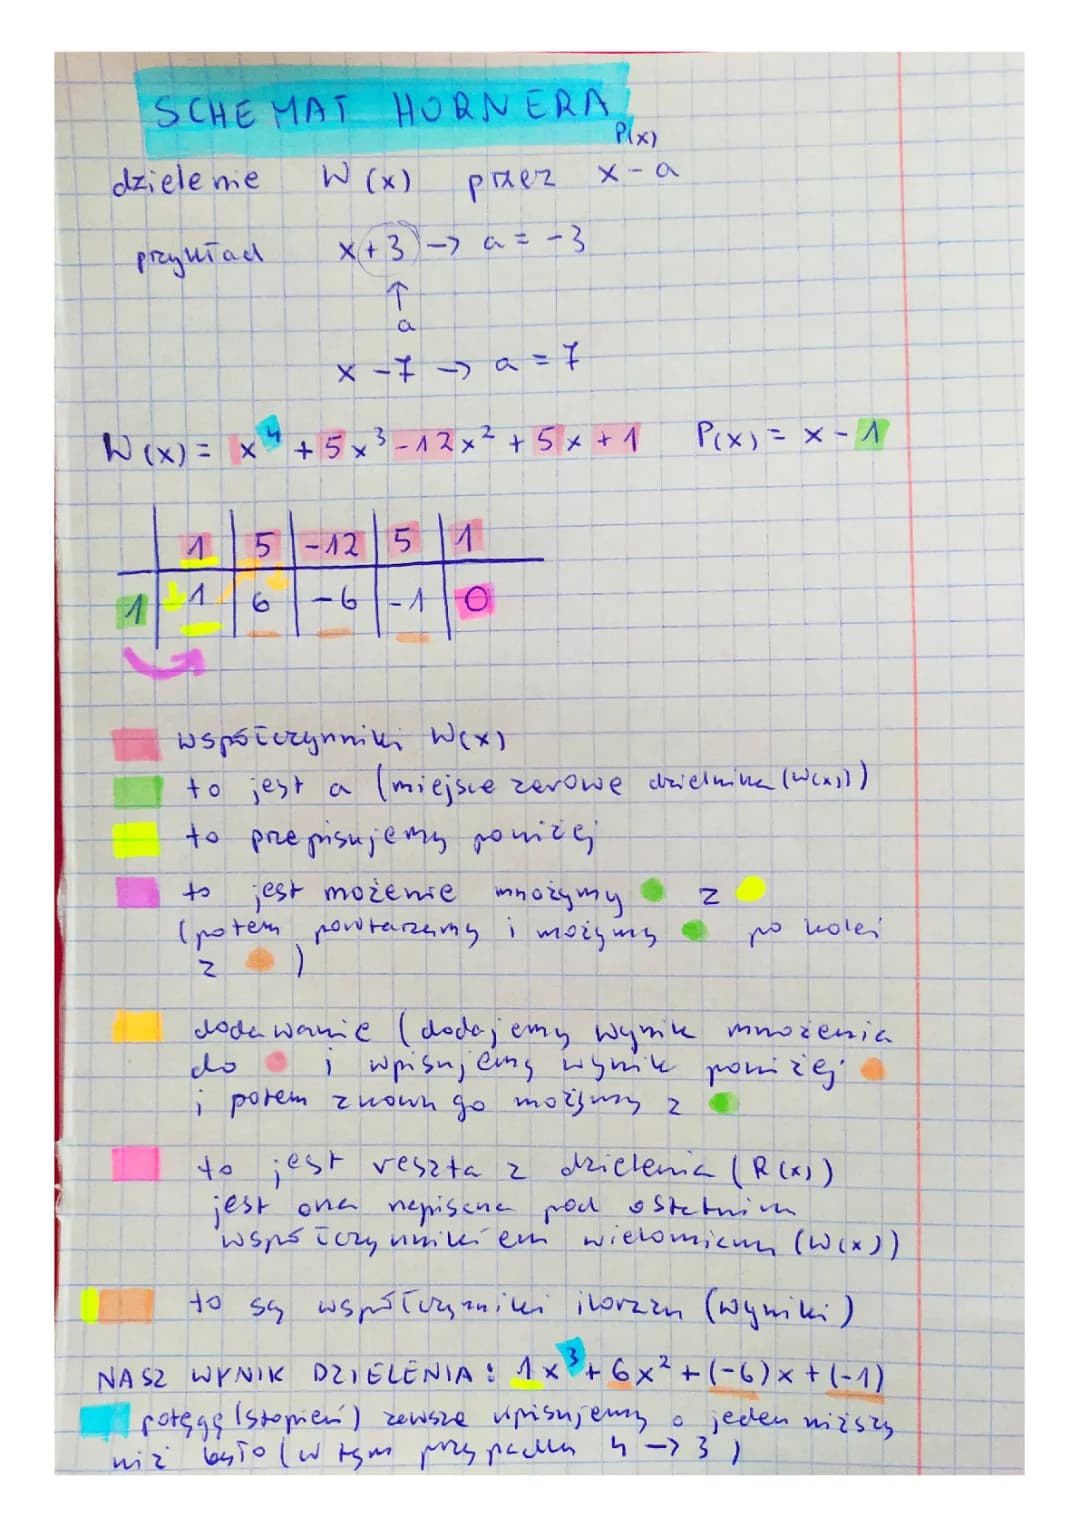 SCHEMAT HORNERA
P(x)
dzielenie W(x) przez x-a
przykład x+3 → a = -3
↑
a
x-7 → a = 7
W(x) = x⁴ + 5x³ - 12x² + 5x + 1 P(x) = x - 1
1 5 -12 5 1
1 1 6 -6 -1 0
współczynniki W(x)
to jest a (miejsce zerowe dzielnika (W(x)))
to przepisujemy poniżej
to jest możenie mnożymy z
(potem powtarzamy i możymy po kolei
z )
dodawanie (dodajemy wynik mnożenia
do i wpisujemy wynik poniżej
i potem znowu go możymy z
to jest reszta z dzielenia (R(x))
jest ona napisana pod ostatnim
współczynnikiem wielomianu (W(x))
to są współczynniki ilorazu (wyniki)
NASZ WYNIK DZIELENIA: 1x³ + 6x² + (-6)x + (-1)
potęgę (stopień) zawsze wpisujemy o jeden niższy
niż było (w tym przypadku 4 → 3)